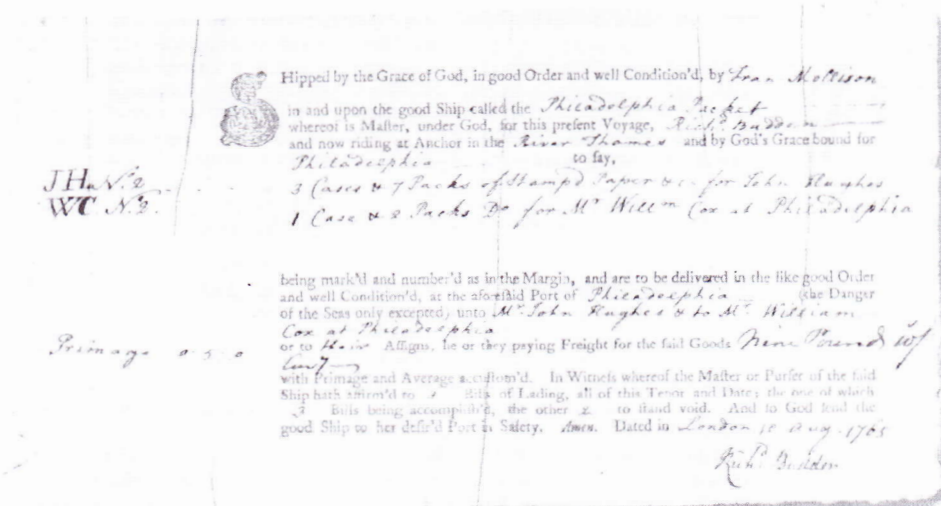 SHipped by the Grace of God, in good Order and well Condition'd, by Fran Mollison
in and upon the good Ship called the Philadelphia Packet
whereof is Master, under God, for this present Voyage, Richd. Budden
and now riding at Anchor in the River Thames and by God's Grace bound for
Philadelphia to say,
JH No. 2
3 Cases & 7 Packs of Stampd Paper &c. for John Hughes
WC No. 2.
1 Case & 2 Packs Do for Mr Willm Cox at Philadelphia
being mark'd and number'd as in the Margin, and are to be delivered in the like good Order
and well Condition'd, at the aforesaid Port of Philadelphia (the Danger
of the Seas only excepted) unto Mr. John Hughes & to Mr. William
Cox at Philadelphia
Primage 0 5 0
or to their Assigns, he or they paying Freight for the said Goods Nine Pounds
with Primage and Average accustom'd. In Witness whereof the Master or Purser of the said
Ship hath affirm'd to 3 Bills of Lading, all of this Tenor and Date; the one of which
3 Bills being accomplish'd, the other 2 to stand void. And so God send the
good Ship to her desir'd Port in Safety. Amen. Dated in London Aug. 1765
Richd. Budden